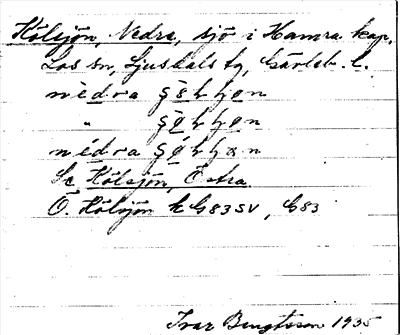 Kölsjön, Nedra, sjö i Hamra kap.
Los sn, Ljusdals tg, Gävleb. l.
nèdra
"
nédra
Se Kölsjön, Östra.
Ö. Kölsjön k G83SV, G83
Ivar Bengtsson 1935